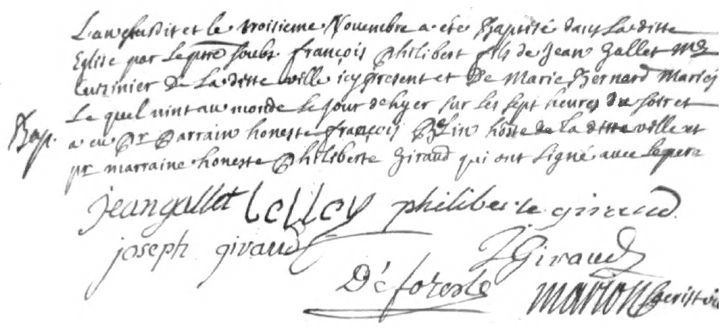 L'an susdit et le troisieme Novembre a été Baptisé dans La ditte
Eglise par Le ptre soubs. françois philibert fils de Jean Gallet me
Cuizinier De La ditte ville icy present et De Marie Bernard Mariés
Le quel vint au monde Le Jour de hyer sur les sept heures du soir et
Bap. a eu pr parrain honeste françois hoste de la ditte ville et
pr marraine honeste philiberte Giraud qui ont signé avec le pere
jean gallet philiberte giraud
joseph giraud JGiraud
De foreste marion